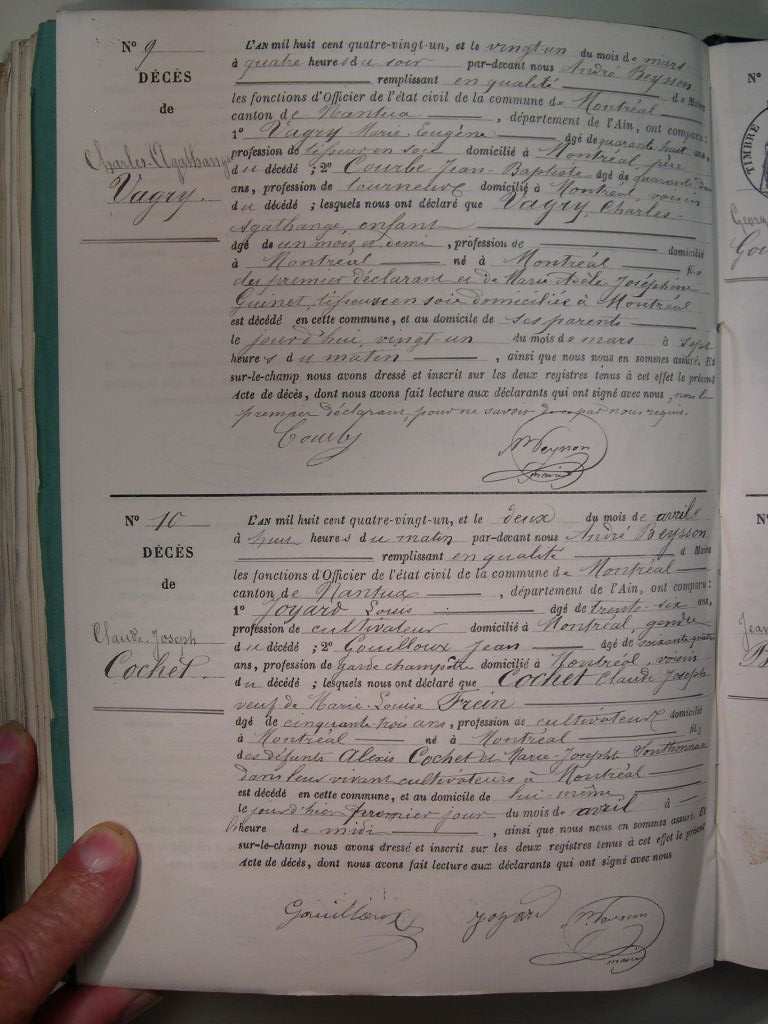 N° 9
DÉCÈS
de
Charles-Agathange
Vagry.
L'AN mil huit cent quatre-vingt-un, et le vingt-un du mois de mars
à quatre heures du soir par-devant nous André Beysson
remplissant en qualité de Maire
les fonctions d'Officier de l'état civil de la commune de Montréal
canton de Nantua, département de l'Ain, ont comparu:
1° Vagry Marie Eugène âgé de quarante huit ans
profession de tisseur en soie domicilié à Montréal père
du décédé; 2° Courbe Jean-Baptiste âgé de quarante
ans, profession de tourneur domicilié à Montréal, voisin
du décédé; lesquels nous ont déclaré que Vagry, Charles-
Agathange, enfant
âgé de un mois et demi, profession de domicilié
à Montréal né à Montréal fils
du premier déclarant et de Marie Joséphine
Guinet, tisseuse en soie domiciliée à Montréal
est décédé en cette commune, et au domicile de ses parents
le jourd'hui, vingt-un du mois de mars à sept
heures du matin, ainsi que nous nous en sommes assuré. Et
sur-le-champ nous avons dressé et inscrit sur les deux registres tenus à cet effet le présent
Acte de décès, dont nous avons fait lecture aux déclarants qui ont signé avec nous, non le
premier déclarant, pour ne savoir par nous requis.
Courbe
maire
N° 10
DÉCÈS
de
Claude-Joseph
Cochet.
L'AN mil huit cent quatre-vingt-un, et le deux du mois de avril
à heures du matin par-devant nous André Beysson
remplissant en qualité d Maire
les fonctions d'Officier de l'état civil de la commune de Montréal
canton de Nantua, département de l'Ain, ont comparu:
1° Joyard Louis âgé de trente-six ans,
profession de cultivateur domicilié à Montréal, gendre
du décédé; 2° Gouilloux Jean âgé de soixante quatre
ans, profession de garde champêtre domicilié à Montréal, voisin
du décédé; lesquels nous ont déclaré que Cochet Claude Joseph
veuf de Marie-Louise
âgé de cinquante trois ans, profession de cultivateur domicilié
à Montréal né à Montréal fils
des défunts Alexis Cochet et Marie-Josephte Sonthonnax
dans leur vivant cultivateurs à Montréal
est décédé en cette commune, et au domicile de lui-même
le jour d'hier premier jour du mois de avril à
heure de midi, ainsi que nous nous en sommes assuré. Et
sur-le-champ nous avons dressé et inscrit sur les deux registres tenus à cet effet le présent
Acte de décès, dont nous avons fait lecture aux déclarants qui ont signé avec nous
Gouilloux Joyard
maire
N°
TIMBRE
N°
Jean